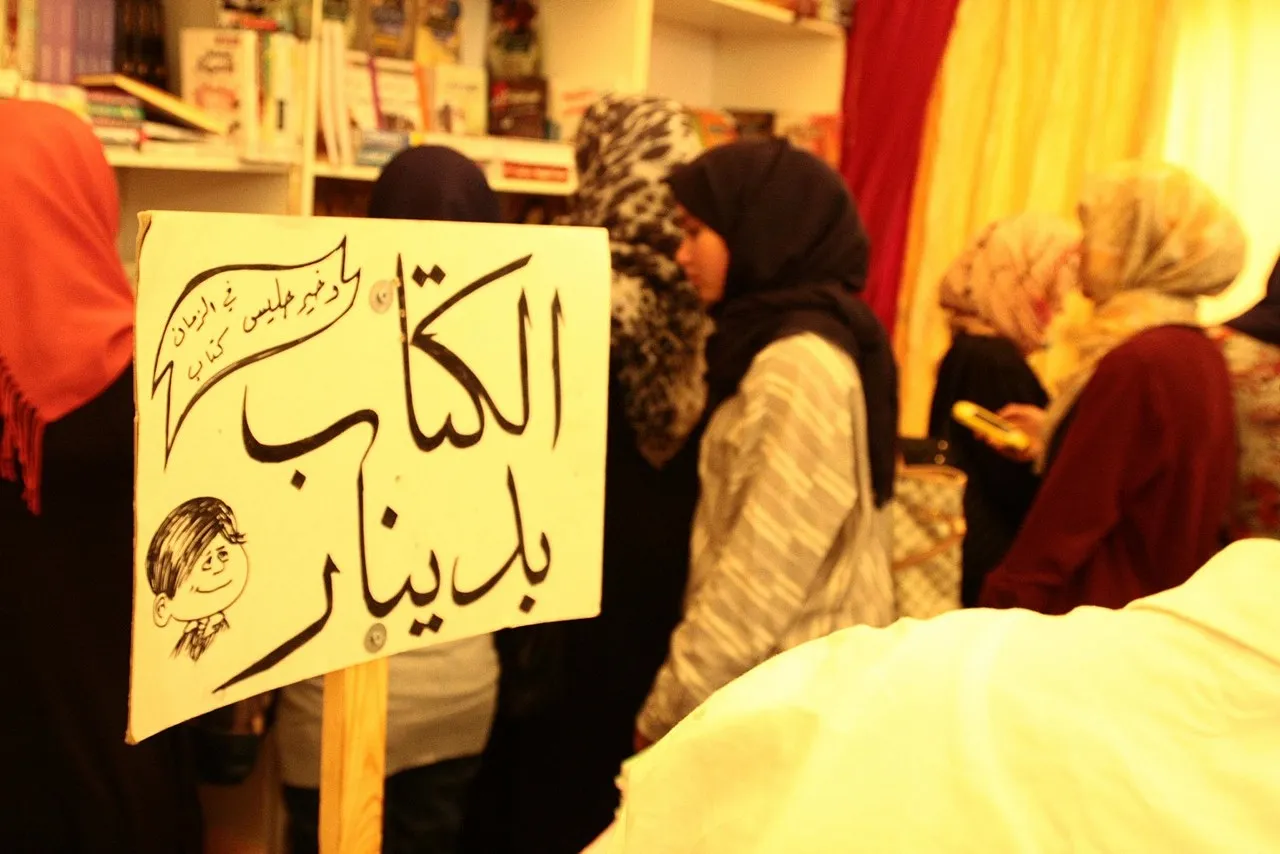 الكتاب
بدينار
وخير جليس
في الزمان
كتاب